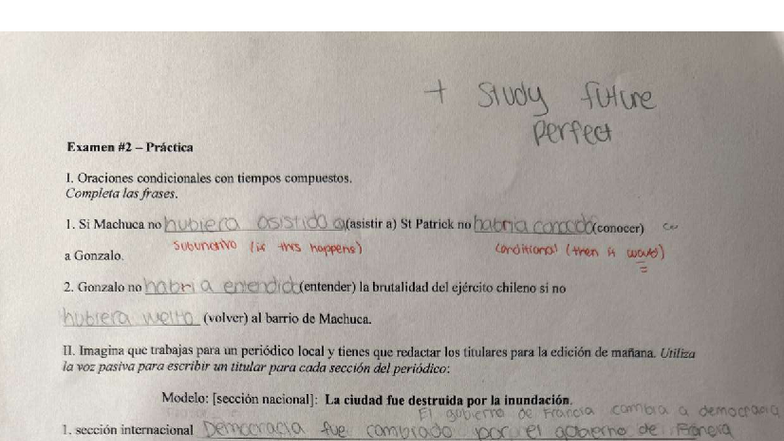 + study future
perfect
Examen #2 – Práctica
I. Oraciones condicionales con tiempos compuestos.
Completa las frases.
1. Si Machuca no hubiera asistido a (asistir a) St Patrick no habría conocido (conocer)
subjuntivo (if this happens) conditional (then it would)
a Gonzalo.
2. Gonzalo no habría entendido (entender) la brutalidad del ejército chileno si no
hubiera vuelto (volver) al barrio de Machuca.
II. Imagina que trabajas para un periódico local y tienes que redactar los titulares para la edición de mañana. Utiliza
la voz pasiva para escribir un titular para cada sección del periódico:
Modelo: [sección nacional]: La ciudad fue destruida por la inundación.
El gobierno de Francia cambra a democracia
1. sección internacional Democracia fue cambrado por el gobierno de Francia